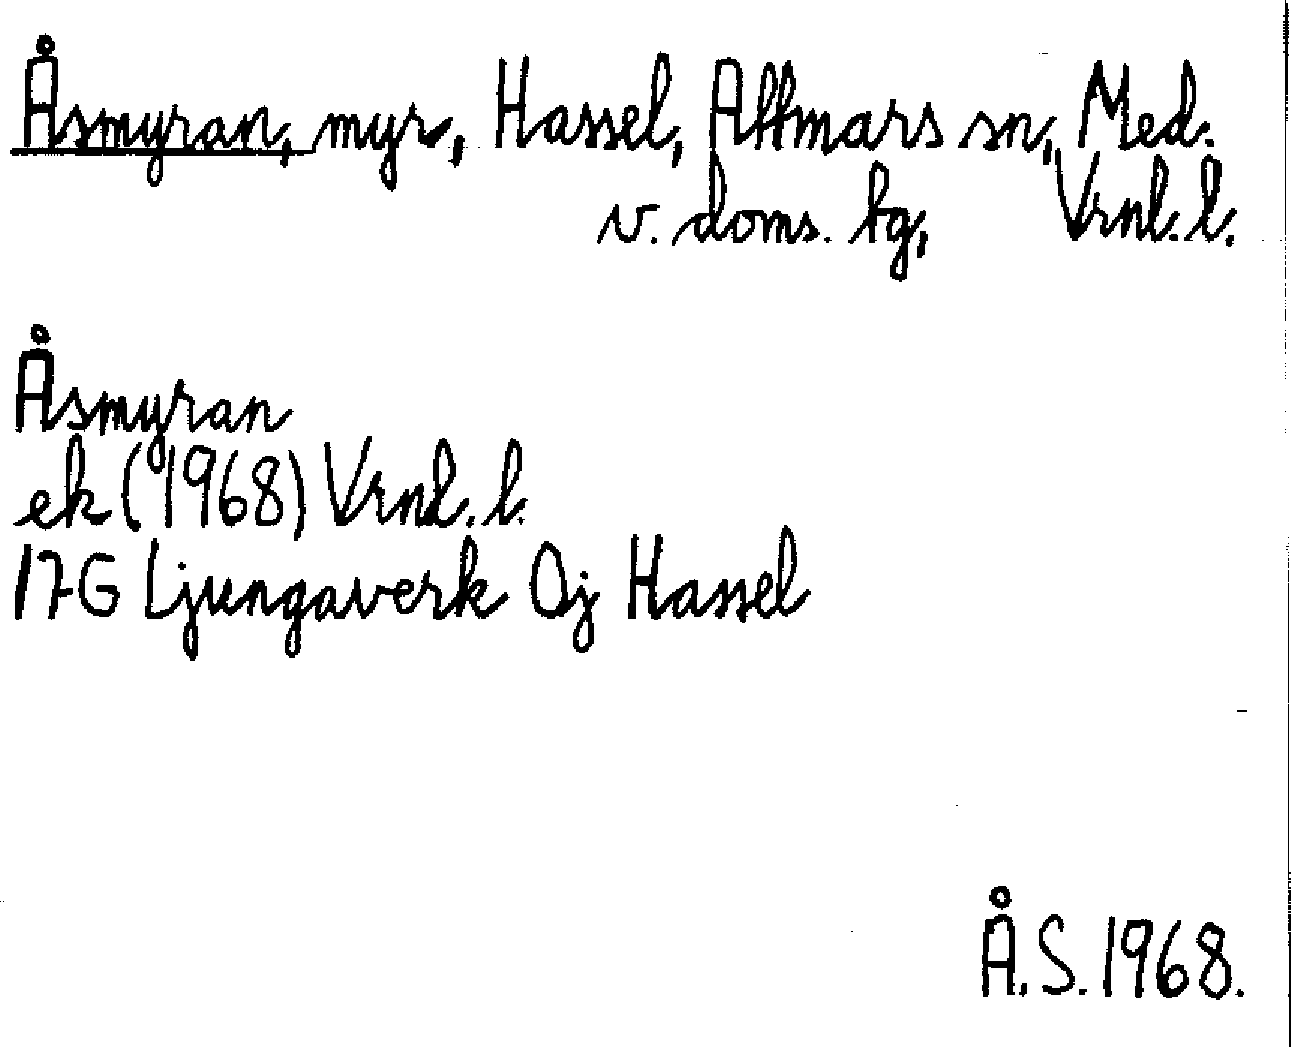 Åsmyran, myr, Hassel, Attmars sn, Med.
v. doms. bg, Vrnl. l.
Åsmyran
ek (1968) Vrnl. l.
17G Ljungaverk 0j Hassel
Å.S. 1968.